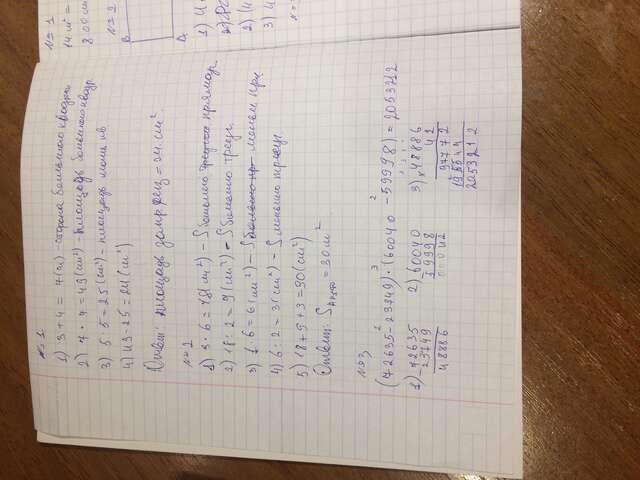 № 1
1) 3 + 4 = 7 (см) - сторона большого квадрата
2) 7 · 7 = 49 (см²) - площадь большого квадр
3) 5 · 5 = 25 (см²) - площадь мень кв
4) 49 - 25 = 24 (см²)
Ответ: площадь = 24 см².
№ 2
1) 3 · 6 = 18 (см²) - S большого прямоуг.
2) 18 : 2 = 9 (см²) - S большого треуг.
3) 1 · 6 = 6 (см²) - S меньш пр
4) 6 : 2 = 3 (см²) - S меньшего треуг
5) 18 + 9 + 3 = 30 (см²)
Ответ: S = 30 м²
№ 3
(72635 - 23749) · (60040 - 59998) = 2053212
1) 72635 2) 60040 3) 48886
- 23749 - 59998 × 42
48886 00042 97772
195544
2053212
№ 1
14 м² =
№ 2
B
A
1) 4
2) (4
3) 4